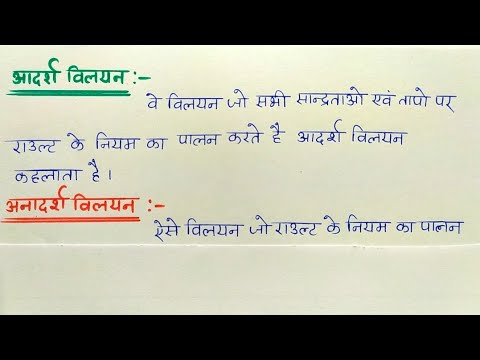 आदर्श विलयन :-
वे विलयन जो सभी सान्द्रताओ एवं तापो पर
राउल्ट के नियम का पालन करते है आदर्श विलयन
कहलाता है ।
अनादर्श विलयन :-
ऐसे विलयन जो राउल्ट के नियम का पालन